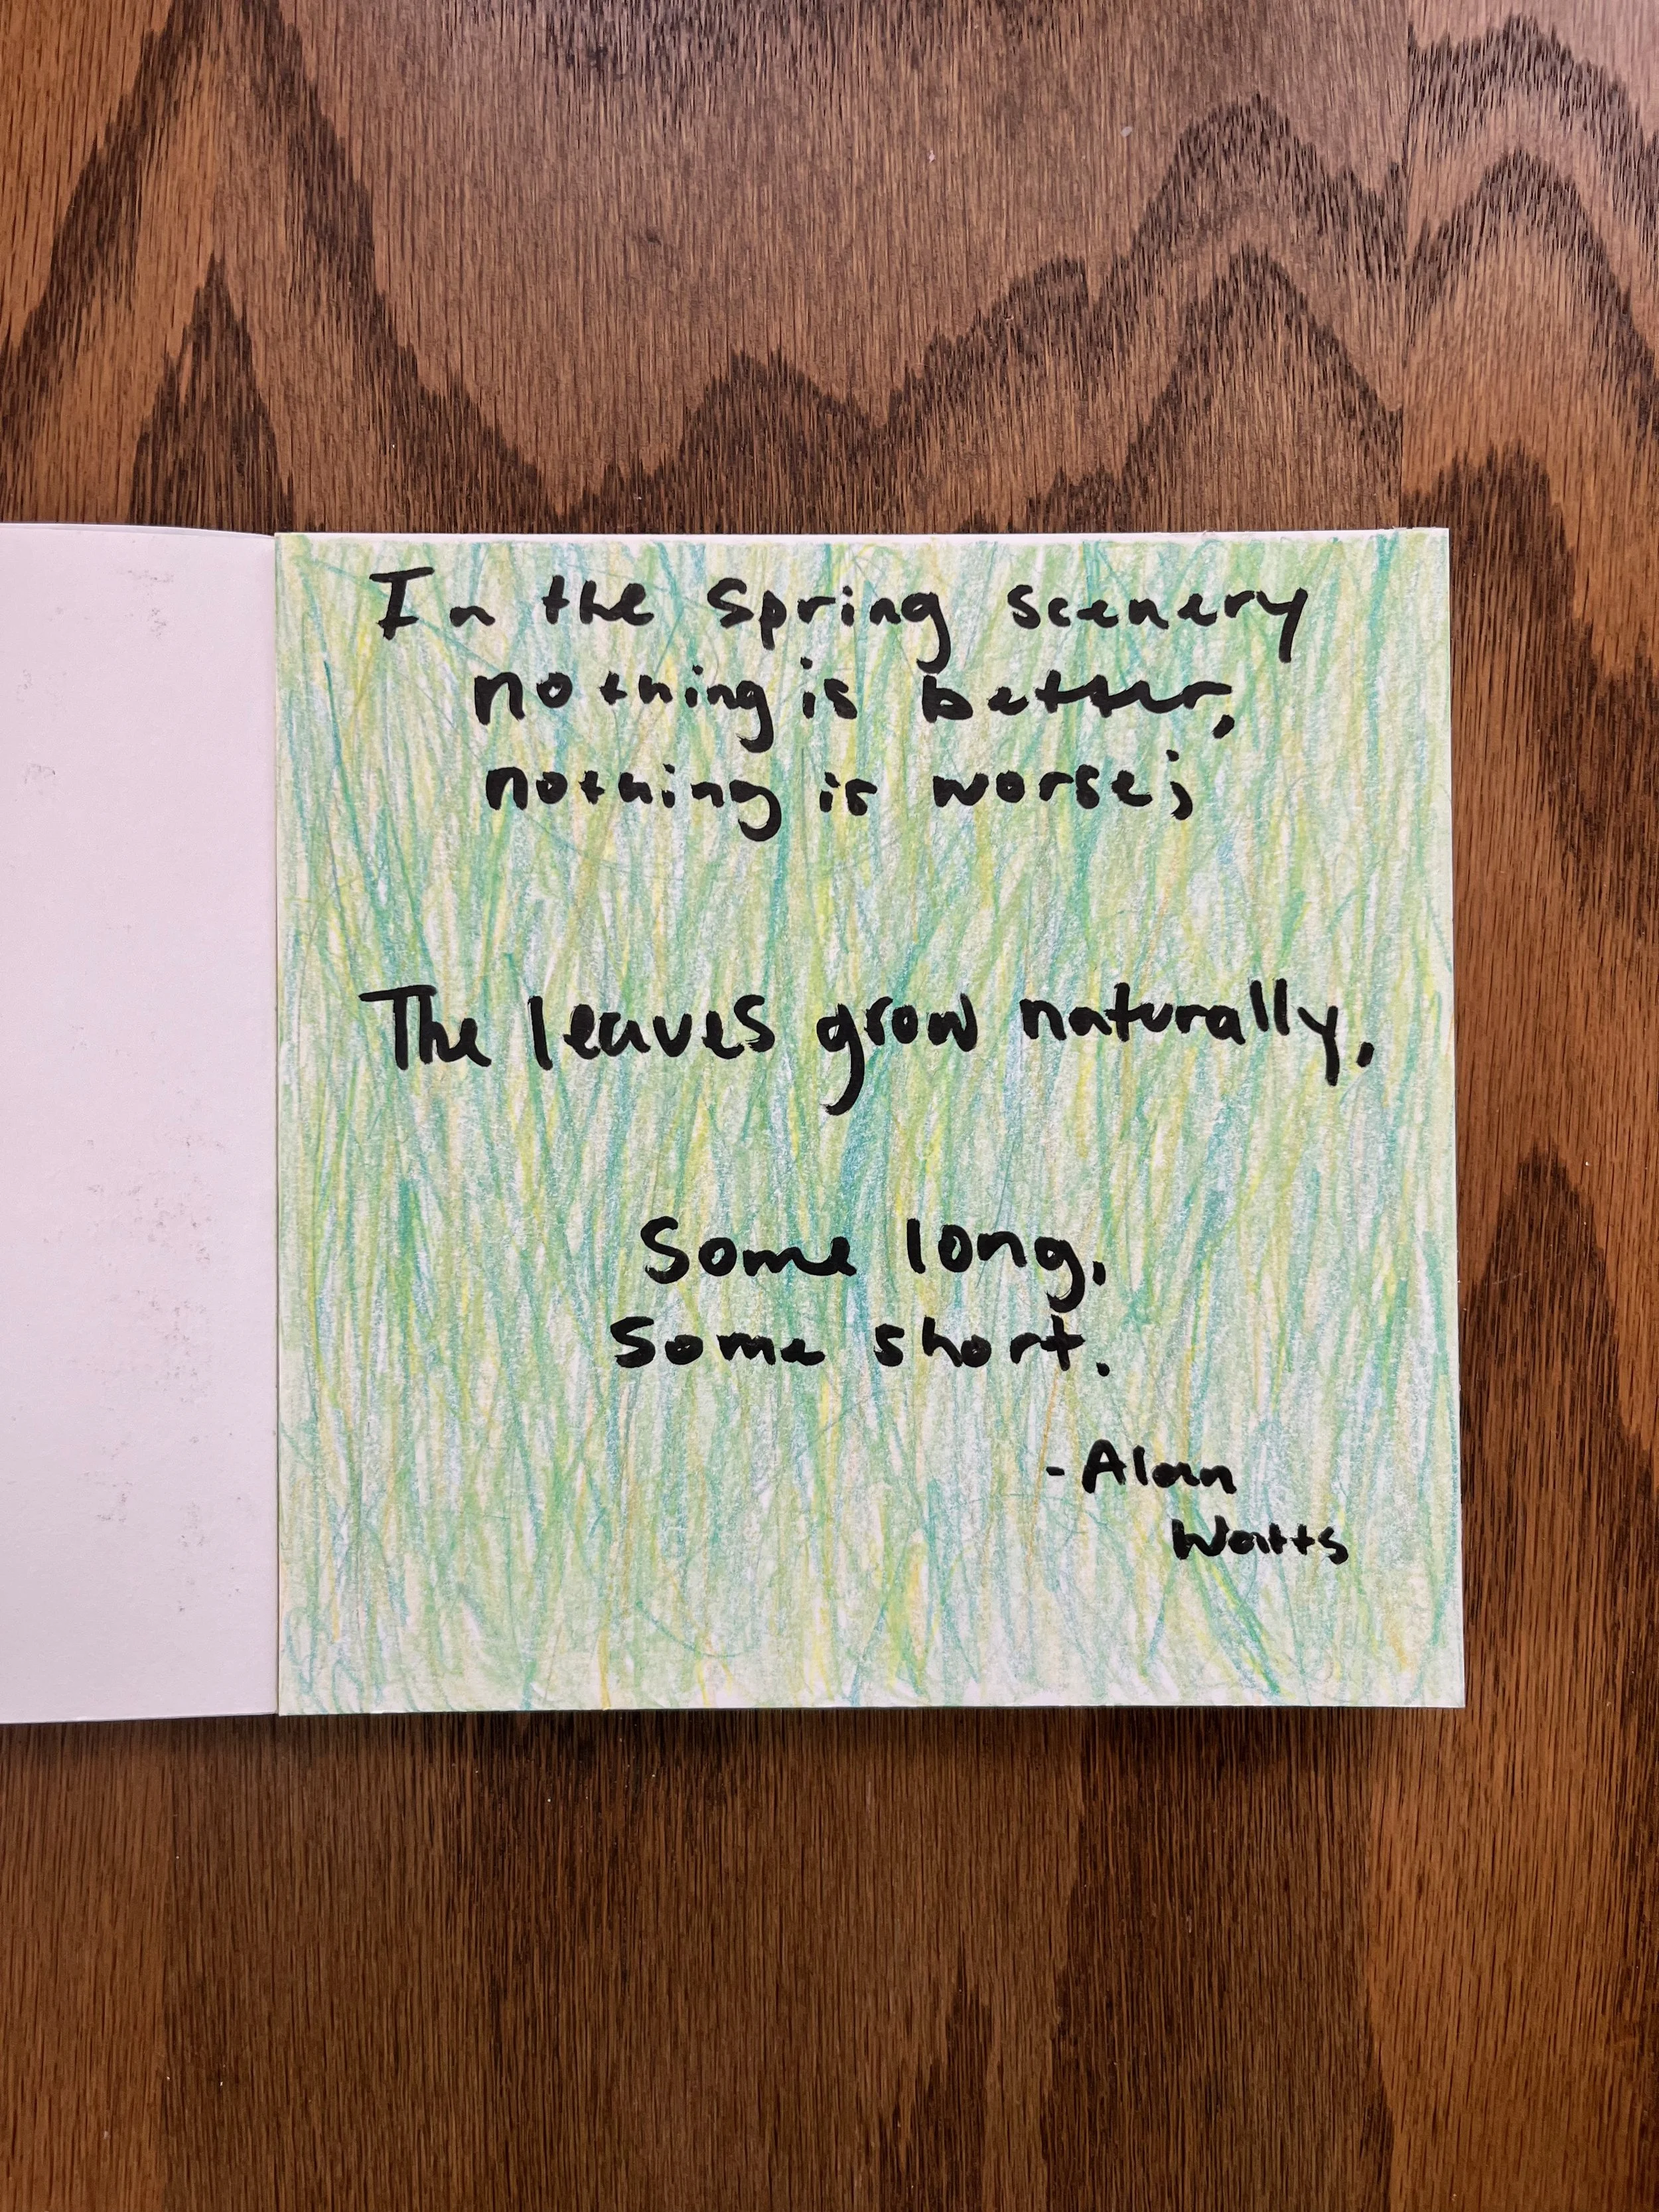 In the spring scenery
nothing is better,
nothing is worse;
The leaves grow naturally,
Some long,
Some short.
-Alan
Watts